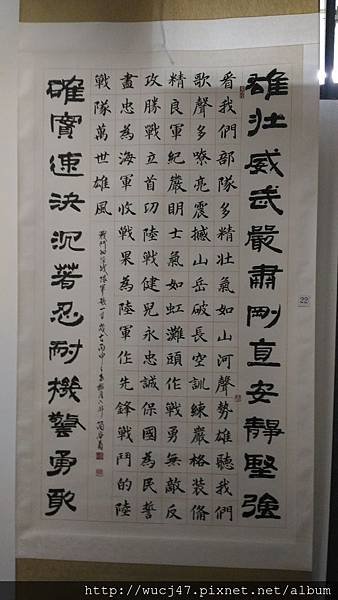 雄壯威武嚴肅剛直安靜堅強
看我們部隊多精壯氣如山河聲勢雄聽我們
歌聲多嘹亮震撼山岳破長空訓練嚴格裝備
精良軍紀嚴明士氣如虹灘頭作戰勇無敵反
攻勝戰立首功陸戰健兒永忠誠保國為民誓
盡忠為海軍收戰果為陸軍作先鋒戰鬥的陸
戰隊萬世雄風
戰鬥的陸戰隊軍歌一首
確實速決沉著忍耐機警勇敢
22
http://wucj47.pixnet.net/album